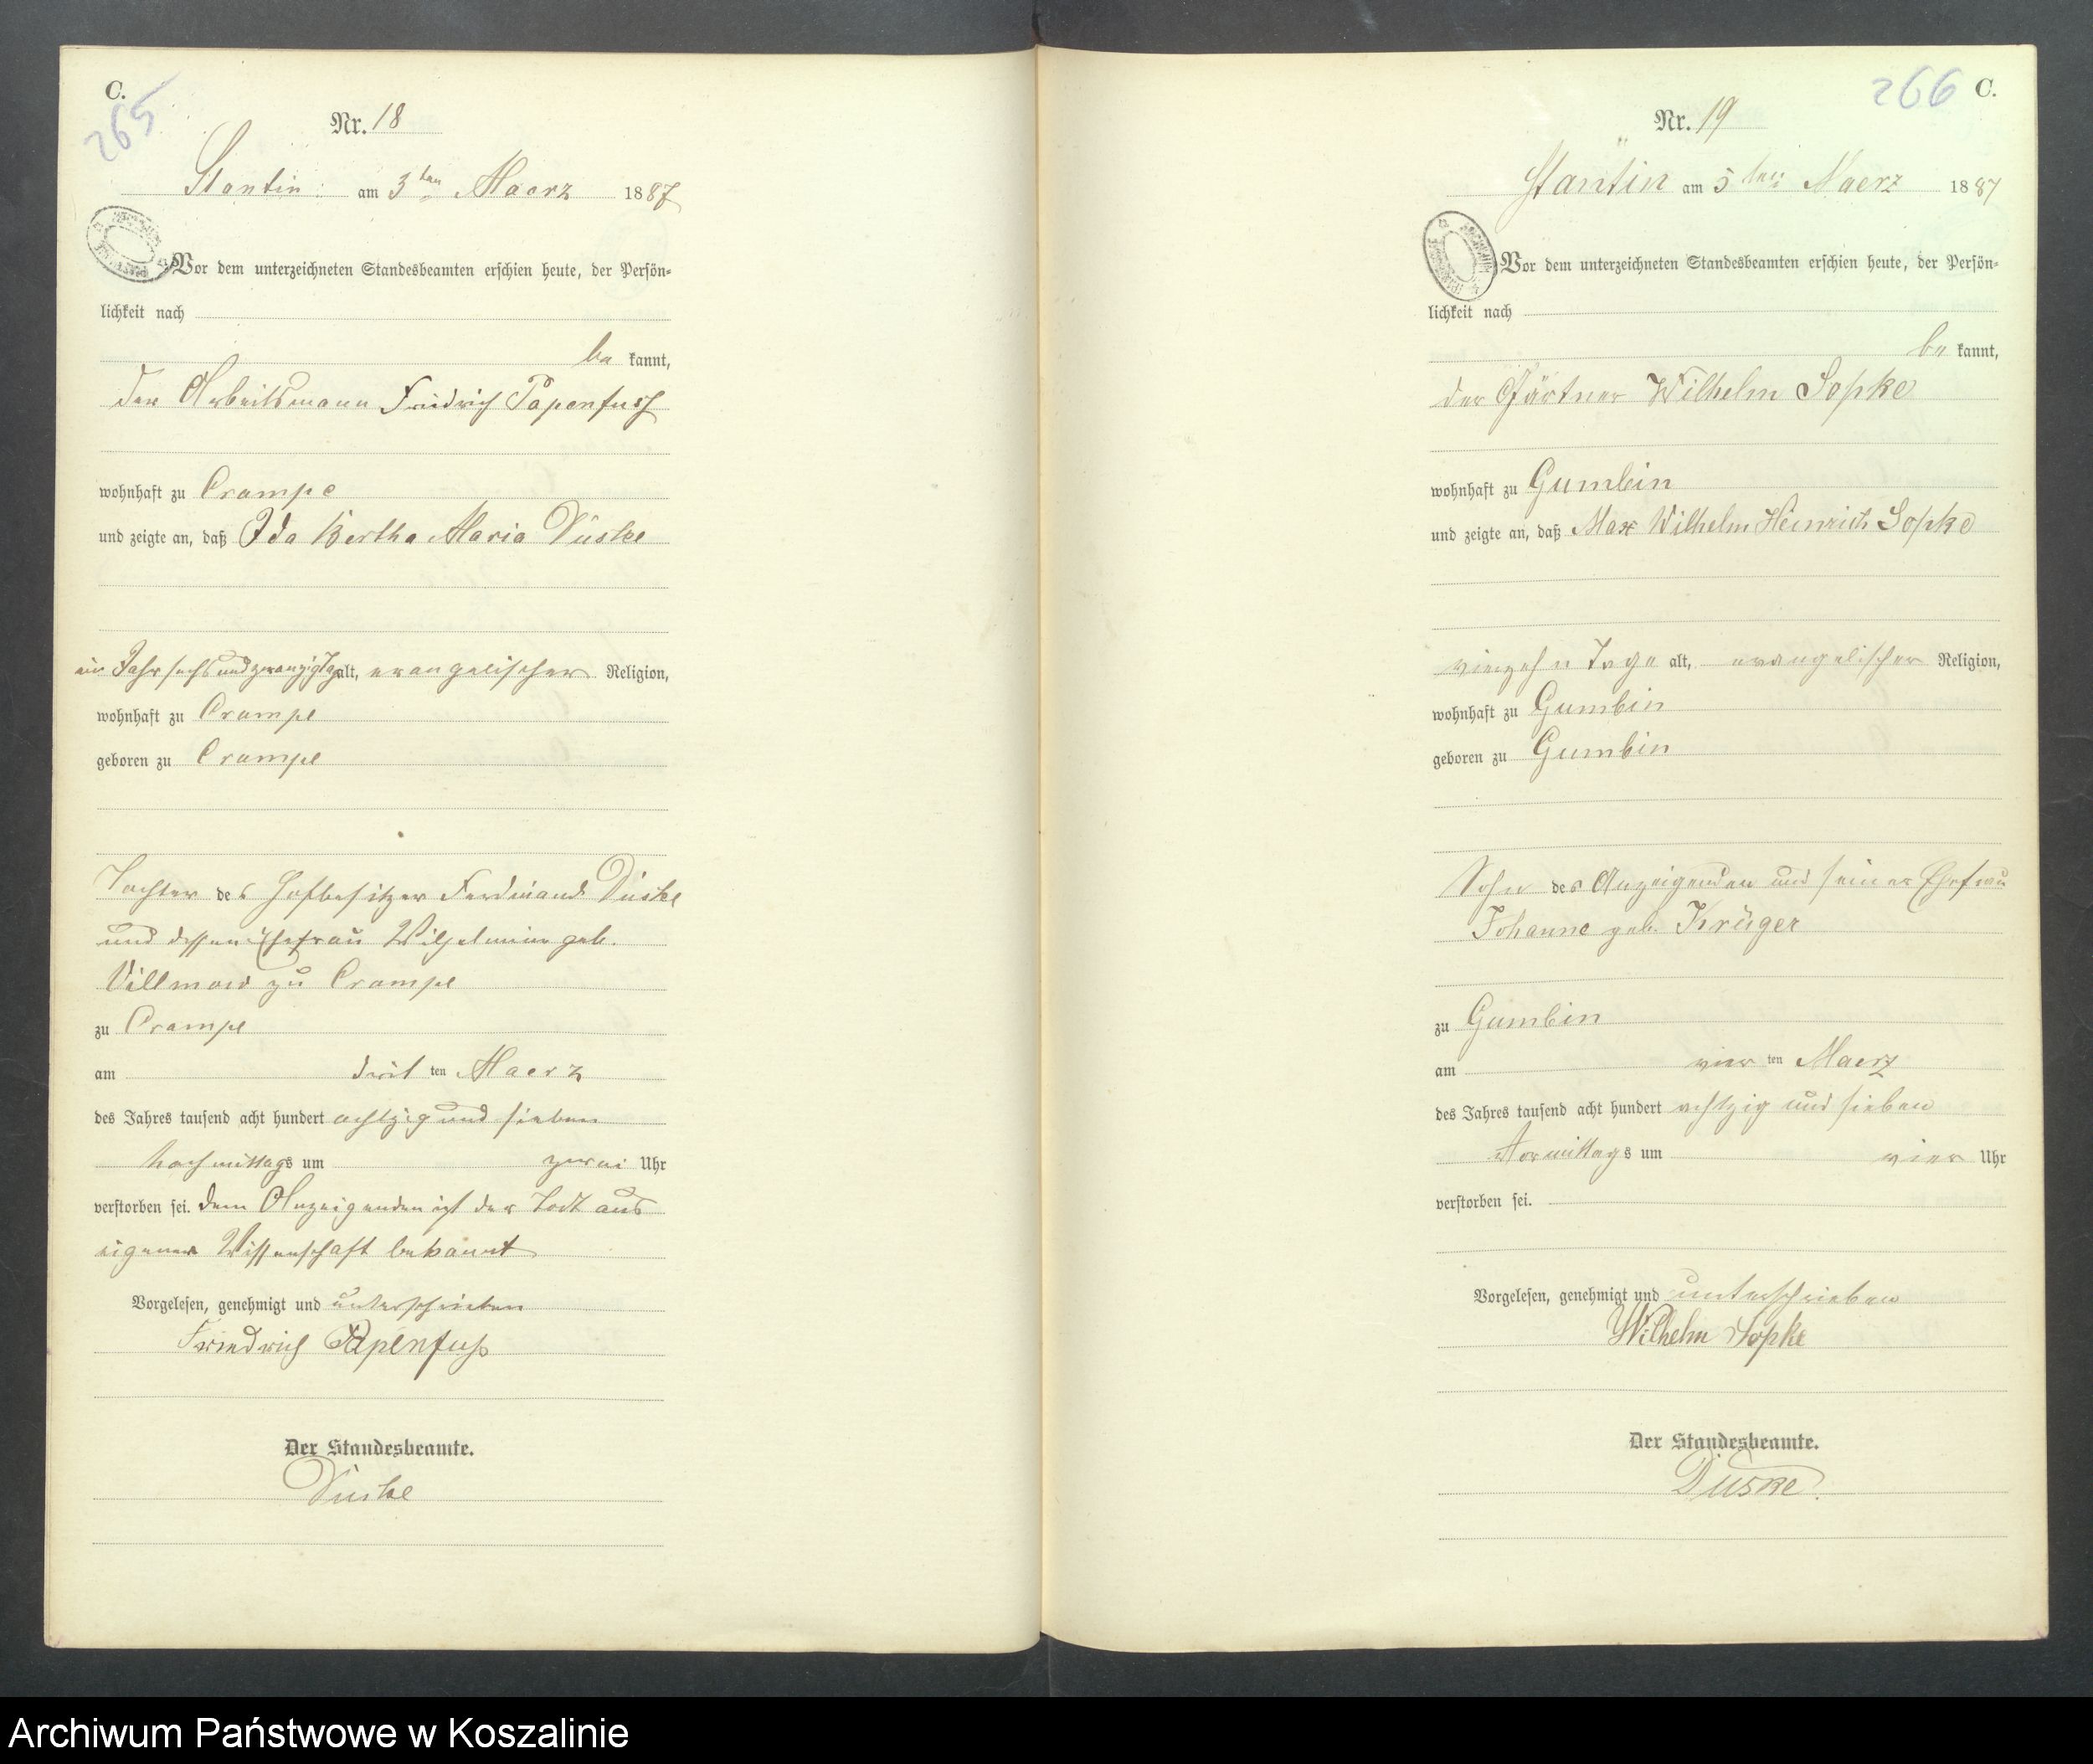 C.
265
Nr. 18
Stantin am 3ten Maerz 1887
Vor dem unterzeichneten Standesbeamten erschien heute, der Persön-
lichkeit nach
be kannt,
der Arbeitsmann Friedrich Papenfuss
wohnhaft zu Crampe
und zeigte an, daß Ida Bertha Maria Düske
ein Jahr sechs und zwanzig Tage alt, evangelischer Religion,
wohnhaft zu Crampe
geboren zu Crampe
Tochter des Hofbesitzer Ferdinand Düske
und dessen Ehefrau Wilhelmine geb.
Villmow zu Crampe
zu Crampe
am drit ten Maerz
des Jahres tausend acht hundert achtzig und sieben
Nachmittags um zwei Uhr
verstorben sei. dem Anzeigenden ist der Todt aus
eigener Wissenschaft bekannt
Vorgelesen, genehmigt und unterschrieben
Friedrich Papenfuß
Der Standesbeamte.
Düske
266 C.
Nr. 19
Stantin am 5ten Maerz 1887
Vor dem unterzeichneten Standesbeamten erschien heute, der Persön-
lichkeit nach
be kannt,
der Gärtner Wilhelm Sopke
wohnhaft zu Gumbin
und zeigte an, daß Max Wilhelm Heinrich Sopke
vierzehn Tage alt, evangelischer Religion,
wohnhaft zu Gumbin
geboren zu Gumbin
Sohn des Anzeigenden und seiner Ehefrau
Johanne geb. Krüger
zu Gumbin
am vier ten Maerz
des Jahres tausend acht hundert achtzig und sieben
Vormittags um vier Uhr
verstorben sei.
Vorgelesen, genehmigt und unterschrieben
Wilhelm Sopke
Der Standesbeamte.
Düske.
Archiwum Państwowe w Koszalinie